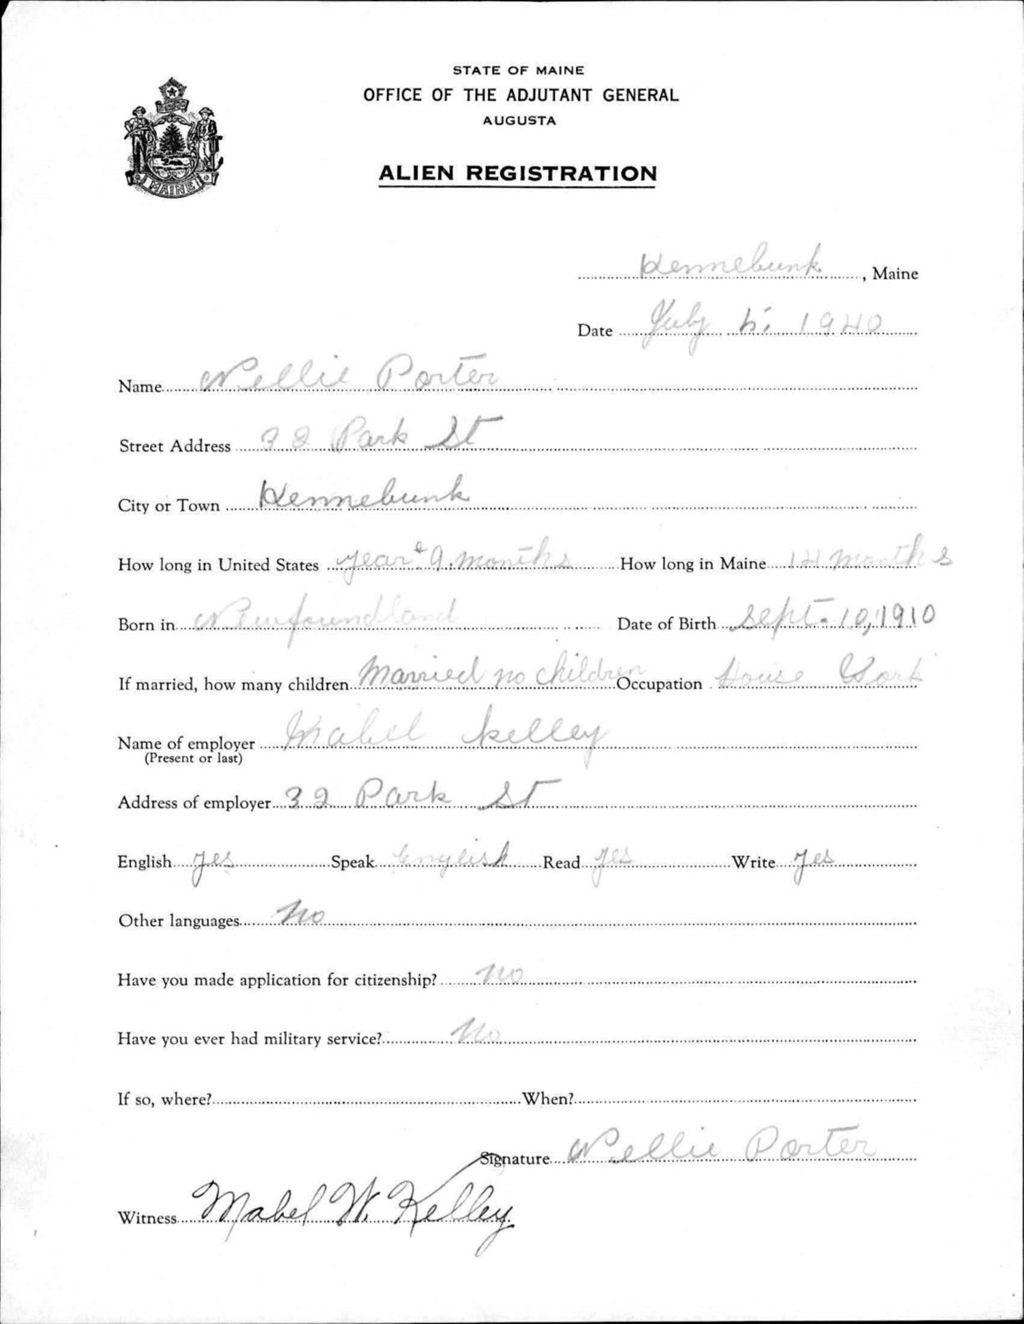 STATE OF MAINE
OFFICE OF THE ADJUTANT GENERAL
AUGUSTA
MAINE
ALIEN REGISTRATION
Kennebunk, Maine
Date July 5, 1940
Name Nellie Porter
Street Address 32 Park St
City or Town Kennebunk
How long in United States year & 9 months How long in Maine 14 months
Born in Newfoundland Date of Birth Sept. 10, 1910
If married, how many children Married no children Occupation House Work
Name of employer Mabel Kelley
(Present or last)
Address of employer 32 Park St
English Yes Speak English Read Yes Write Yes
Other languages No
Have you made application for citizenship? No
Have you ever had military service? No
If so, where? When?
Signature Nellie Porter
Witness Mabel W. Kelley